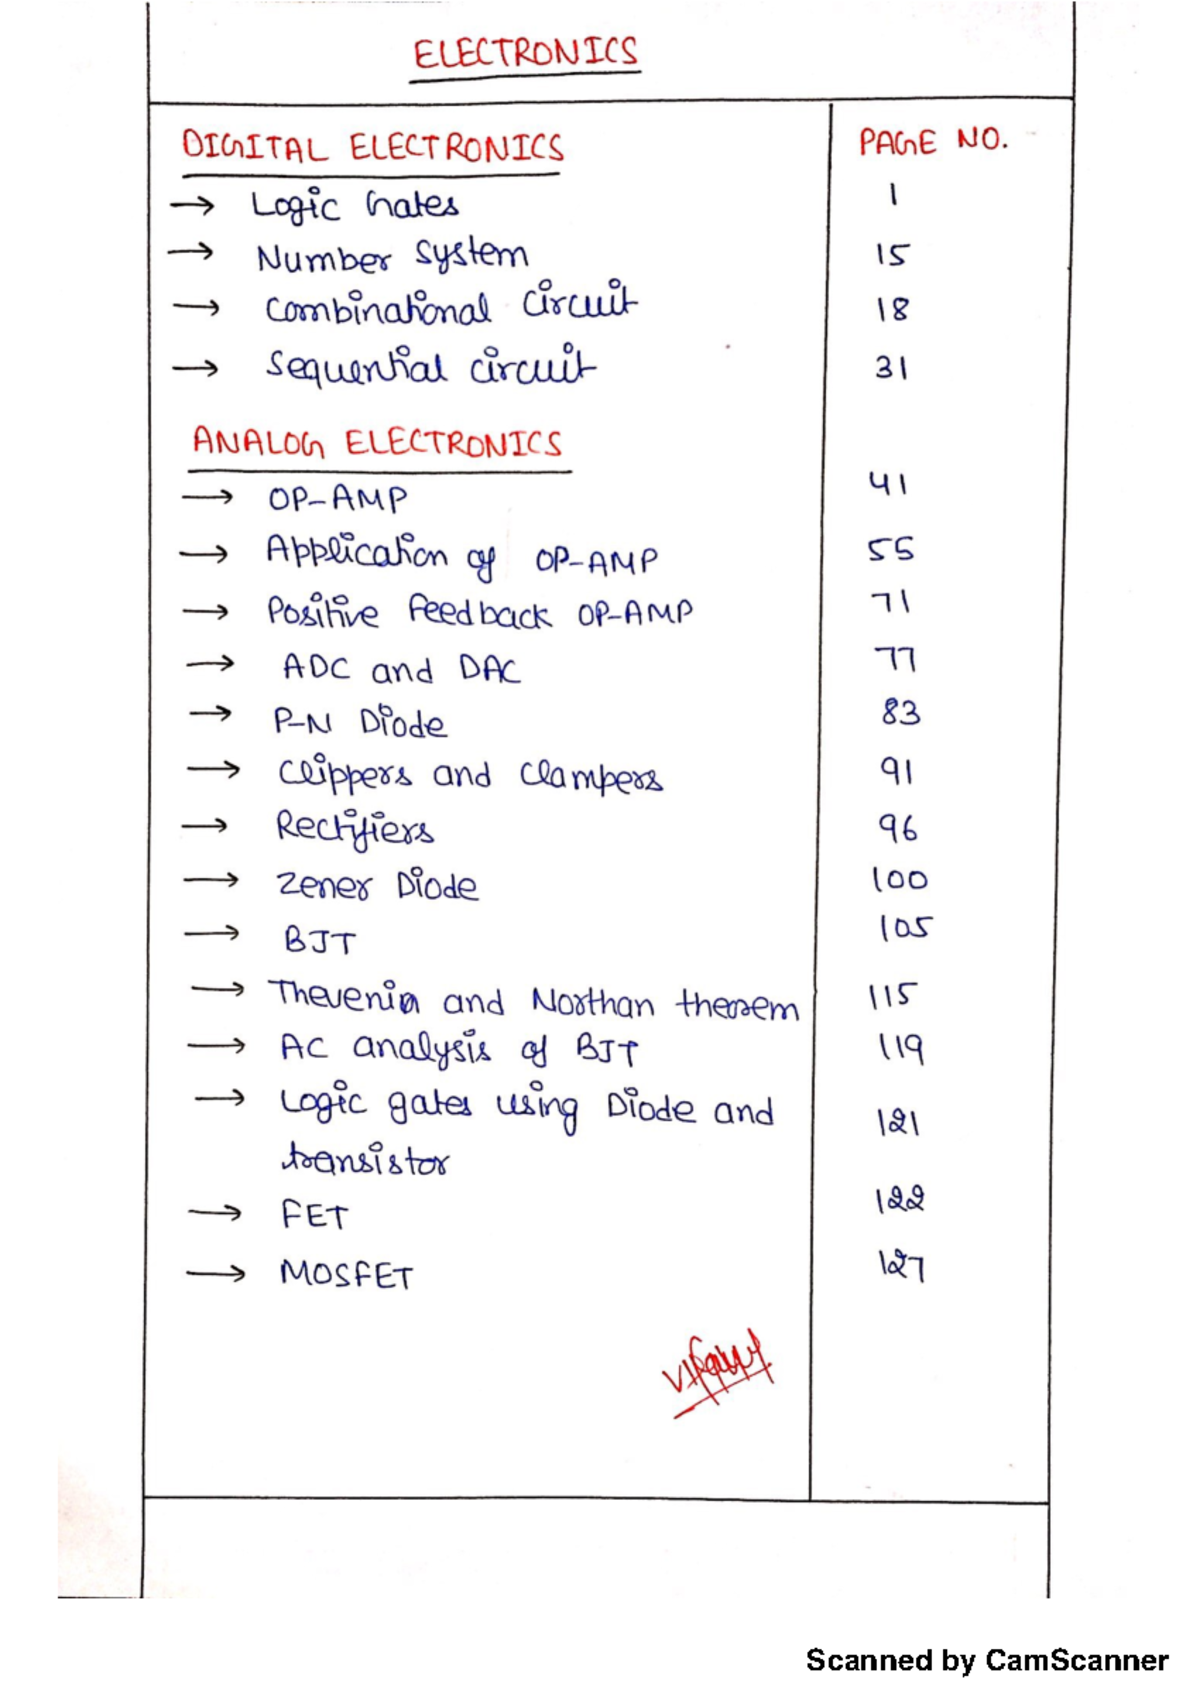 ELECTRONICS
DIGITAL ELECTRONICS PAGE NO.
→ Logic Gates 1
→ Number System 15
→ Combinational Circuit 18
→ Sequential Circuit 31
ANALOG ELECTRONICS
→ OP-AMP 41
→ Application of OP-AMP 55
→ Positive Feedback OP-AMP 71
→ ADC and DAC 77
→ P-N Diode 83
→ Clippers and Clampers 91
→ Rectifiers 96
→ Zener Diode 100
→ BJT 105
→ Thevenin and Northan theorem 115
→ AC analysis of BJT 119
→ Logic gates using Diode and 121
transistor
→ FET 122
→ MOSFET 127
Scanned by CamScanner